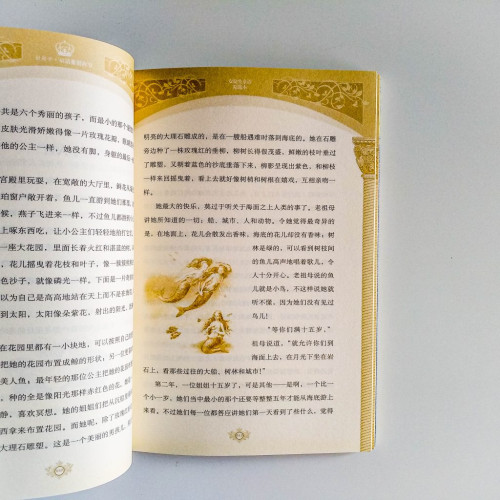 共是六个秀丽的孩子，而最小的那个
皮肤光滑娇嫩得像一片玫瑰花瓣，
他的公主一样，她没有脚，身躯的
宫殿里玩耍，在宽敞的大厅里，
珀窗户敞开着，鱼儿一直游到她们
候，燕子飞进来一样，不过鱼儿
上啄东西吃，让小公主们轻轻地拍
一座大花园，里面长着火红和
，花儿摇曳着花枝和叶子，像一
色沙子，就像磷光一样。下面是一片
以为自己是高高地站在天上而不是在
到太阳，太阳像朵紫花，射出的
在花园里都有一小块地，可以按照自己
把她的花园布置成鲸的形状；另一位
美人鱼。最年轻的那位公主把她的
，种的全是像阳光那样赤红色的花。
静，喜欢冥想。她的姐姐们把从沉
西拿来布置花园。而她呢，除了
大理石雕塑。这是一个美丽的美男儿，
明亮的大理石雕成的，是在一艘船遇难时落到海底的。她在石雕
旁边种了一株玫瑰红的垂柳，柳树长得很茂盛，鲜嫩的枝叶垂过
了雕塑，又朝着蓝色的沙底垂落下来，柳影呈现出紫色，和柳枝
一样来回摇曳着，看上去就好像树梢和树根在嬉戏，互相亲吻一
样。
她最大的快乐，莫过于听关于海面之上人类的事了。老祖母
讲她所知道的一切：船、城市、人和动物。令她觉得最奇异的
是，在地面上，花儿会散发出香味，海底的花儿却没有香味；树
林是绿的，可以看到树枝间
的鱼儿高声地唱着歌儿，令
人十分开心。老祖母说的鱼
儿就是小鸟，不这样说她就
听不懂，因为她们没有见过
鸟儿！
“等你们满十五岁，”
祖母说道，“就允许你们到
海面上去，在月光下坐在岩
石上，看那些过往的大船，树林和城市！”
第二年，一位姐姐十五岁了，可是其他一一是啊，一个比一
个小一岁。她们当中最小的那个还要等整整五年才能从海底游上
来看。不过她们每一位都答应讲她们第一天看到了些什么，觉得